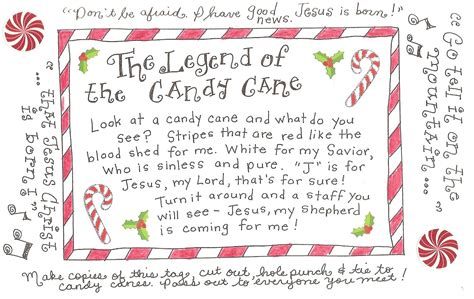 "Don't be afraid. I have good
news. Jesus is born!"
The Legend of
the Candy Cane
Look at a candy cane and what do you
see? Stripes that are red like the
blood shed for me. White for my Savior,
who is sinless and pure. "J" is for
Jesus, my Lord, that's for sure!
Turn it around and a staff you
will see - Jesus, my Shepherd
is coming for me!
"Go tell it on the
mountain...
... that Jesus Christ
is born!"
Make copies of this tag, cut out, hole punch & tie to
candy canes. Pass out to everyone you meet!